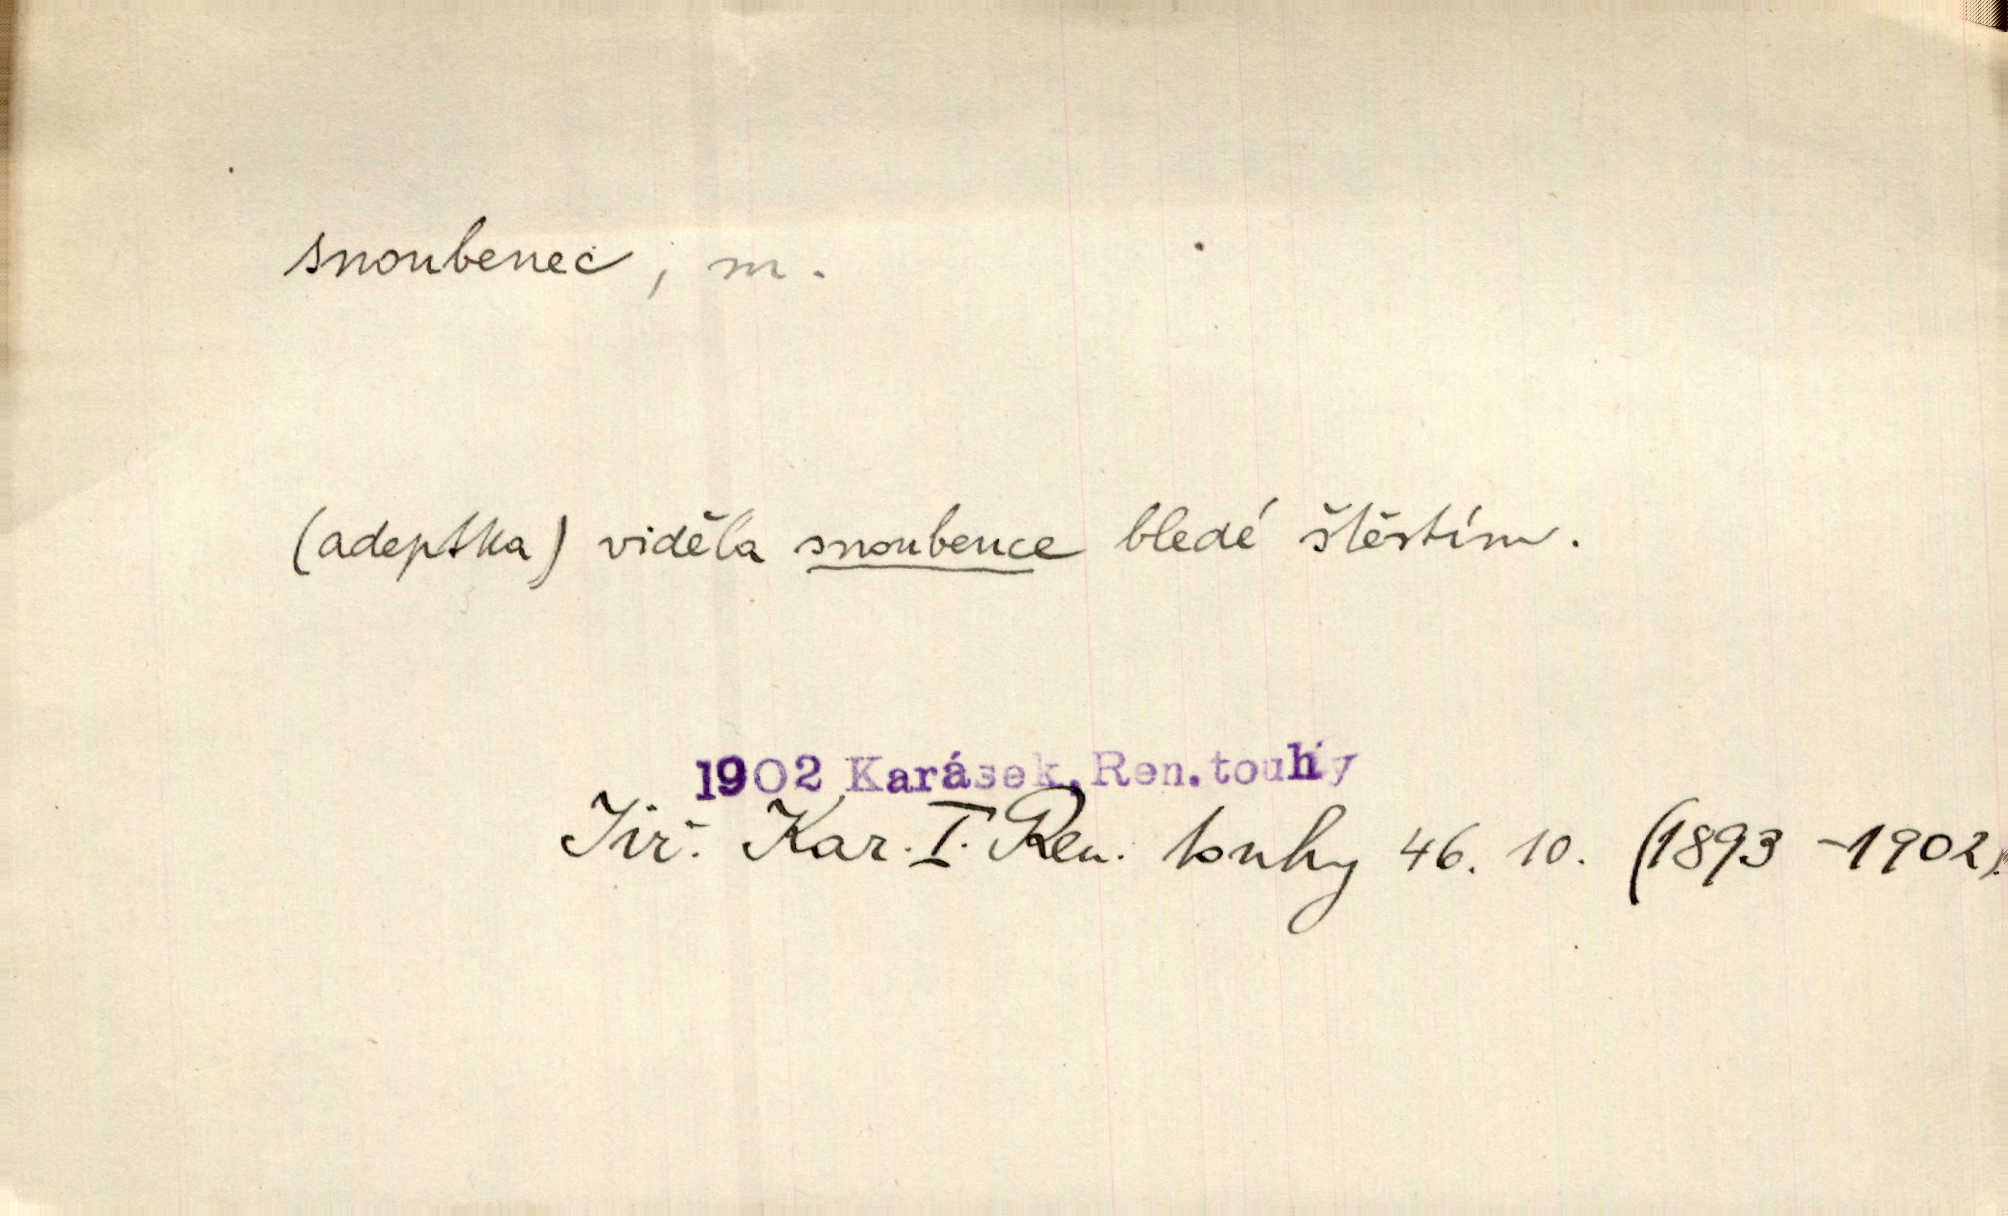 snoubenec, m.
(adeptka) viděla snoubence bledé štěstím.
1902 Karásek, Ren. touhy
Jiř. Kar. I. Ren. touhy 46. 10. (1893 - 1902).